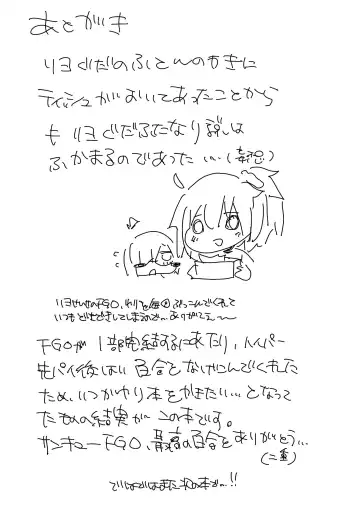 あとがき
リヨぐだのふとんのわきに
ティッシュがおいてあったことから
も リヨぐだふたなり説は
ふかまるのであった…(妄想)
いつもどきどきしていますので…ありがてえ～～
FGOが1部完結するにあたり、ハイパー
先パイ後はい百合をなげこんでくれた
ため、いつかゆり本をかきたい…となって
たための結果がこの本です。
サンキューFGO、最高の百合をありがとう…
ではではまた次の本で…!!